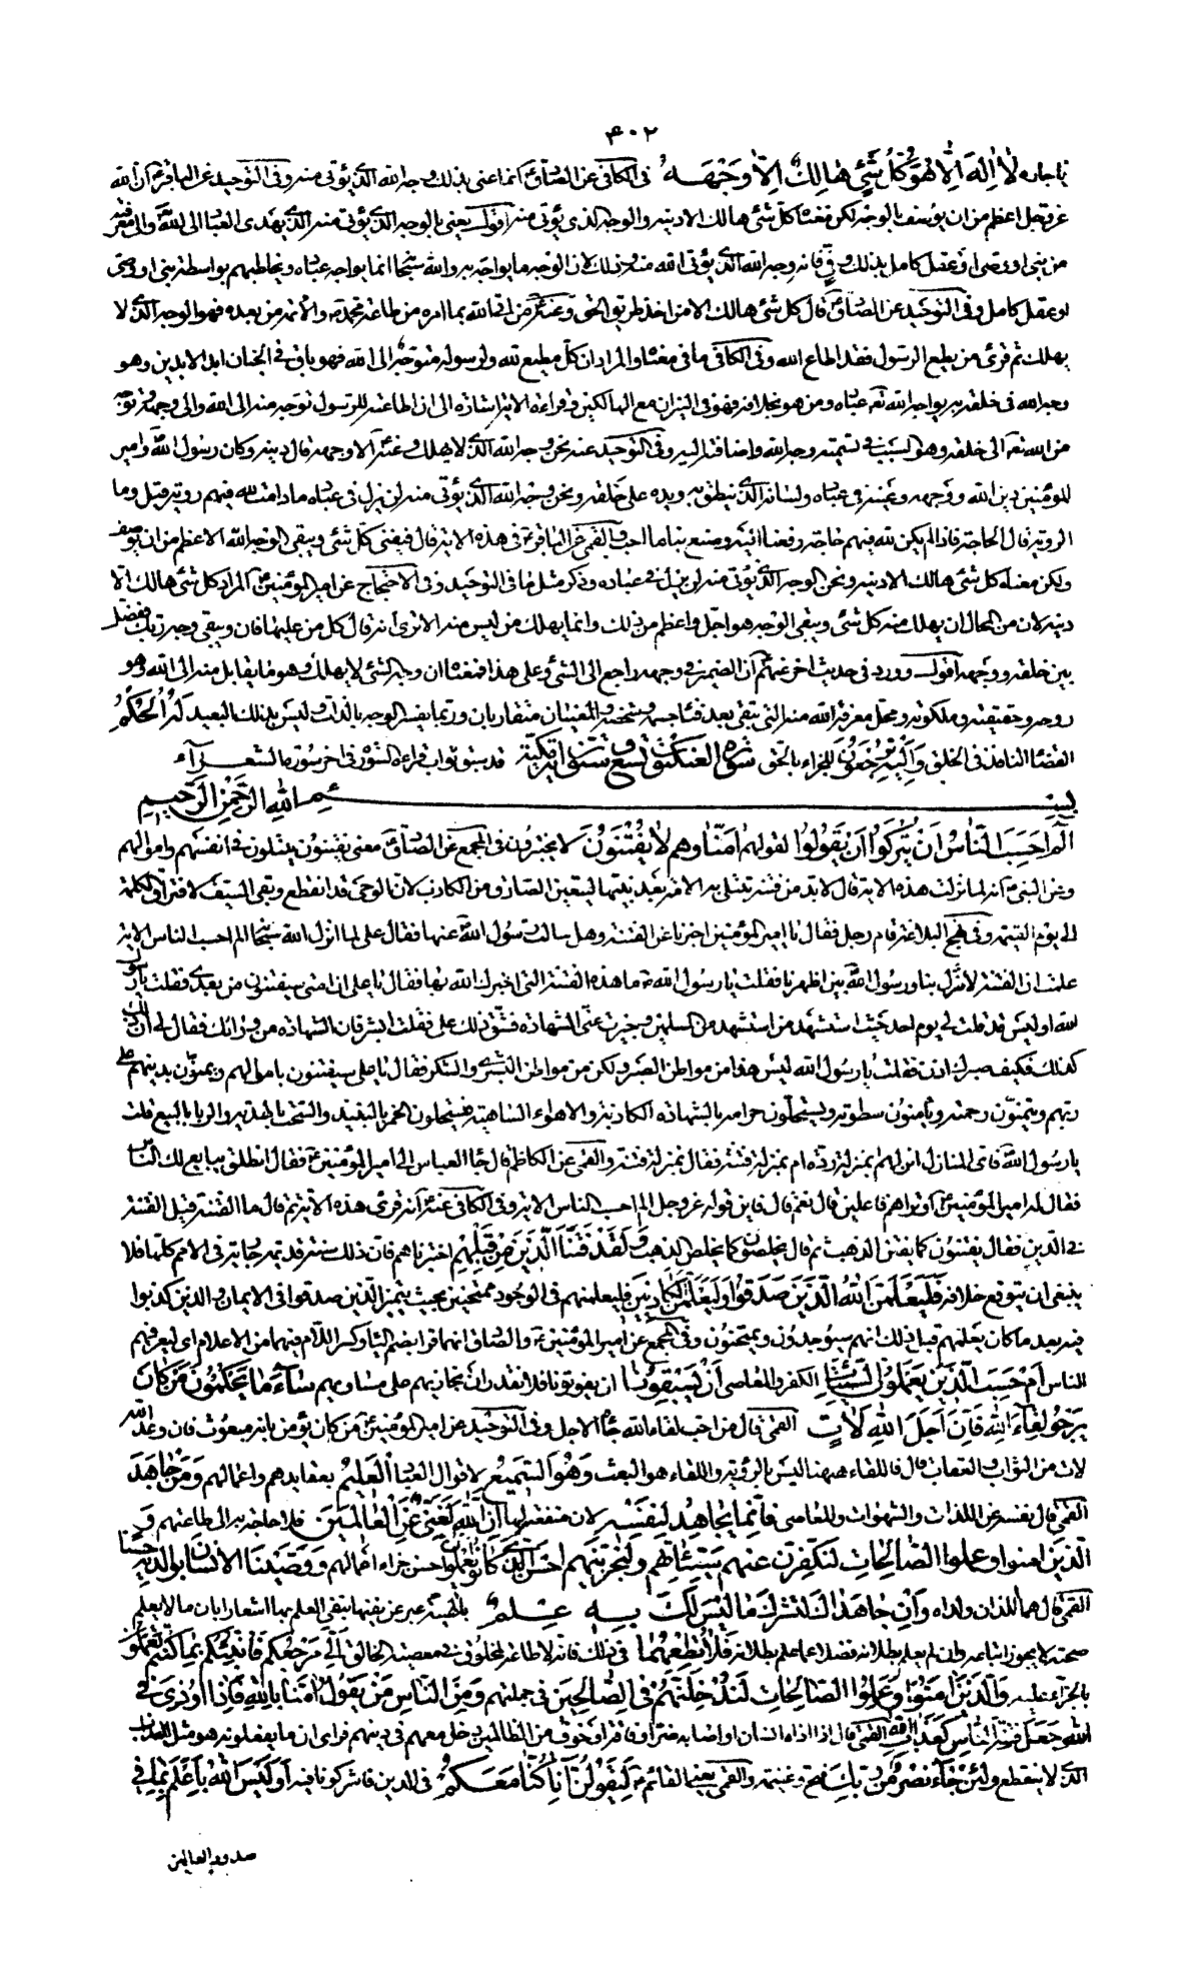 ۴۰۲
يا جاره لا إِلهَ إِلَّا هُوَ كُلُّ شَيْءٍ هالِكٌ إِلَّا وَجْهَهُ في الكافي عن الصادق انما عنى بذلك وجه الله الذي يؤتى منه وفي التوحيد عن الباقر ان الله
عز وجل اعظم من ان يوصف بالوجه لكن معناه كل شئ هالك الا دينه والوجه الذي يؤتى منه اقول يعني بالوجه الذي يؤتى منه الذي يهدي العباد الى الله والى معرفته
من نبي او وصي او عقل كامل بذلك وفي فانه وجه الله الذي يؤتى الله منه وذلك لان الوجه ما يواجه به والله سبحانه انما يواجه عباده ويخاطبهم بواسطة نبي او وصي
او عقل كامل وفي التوحيد عن الصادق قال كل شئ هالك الا من اخذ طريق الحق وعنه من اتى الله بما امره من طاعة محمد والائمة من بعده فهو الوجه الذي لا
يهلك ثم قرئ من يطع الرسول فقد اطاع الله وفي الكافي ما في معناه والمراد ان كل مطيع لله ولرسوله متوجه الى الله فهو باق في الجنان ابد الابدين وهو
وجه الله في خلقه به يواجه الله عباده ومن هو بخلافه فهو في النيران مع الهالكين وقراءة الاية اشارة الى ان اطاعته للرسول توجه منه الى الله والى وجهه وتوجه
من الله تعالى الى خلقه وهو السبب في تسميته وجه الله واضافته اليه وفي التوحيد عنه نحن وجه الله الذي لا يهلك وعنه الا وجهه قال دينه وكان رسول الله وامير
المؤمنين دين الله ووجهه وعينه في عباده ولسانه الذي ينطق به ويده على خلقه ونحن وجه الله الذي يؤتى منه لن نزل في عباده ما دامت لله فيهم روية قيل وما
الروية قال الحاجة فاذا لم يكن لله فيهم حاجة رفعنا اليه وصنع بنا ما احب والقمي عن الباقر في هذه الاية قال فيفنى كل شئ ويبقى الوجه الله الاعظم من ان يوصف
ولكن معناه كل شئ هالك الا دينه ونحن الوجه الذي يؤتى منه لن نزل في عباده وذكر مثل ما في التوحيد وفي الاحتجاج عن امير المؤمنين المراد كل شئ هالك الا
دينه لان من المحال ان يهلك منه كل شئ ويبقى الوجه هو اجل واعظم من ذلك وانما يهلك من ليس منه الا ترى انه قال كل من عليها فان ويبقى وجه ربك ففصل
بين خلقه ووجهه اقول وورد في حديث اخر عنهم ان الضمير في وجهه راجع الى الشئ وعلى هذا فمعناه ان وجه الشئ لا يهلك وهو ما يقابل منه الى الله وهو
روحه وحقيقته وملكوته ومحل معرفة الله منه التي تبقى بعد فناء جسمه وشخصه والمعنيان متقاربان وربما يفسر الوجه بالذات وليس بذلك البعيد لَهُ الْحُكْمُ
القضاء النافذ في الخلق وَإِلَيْهِ تُرْجَعُونَ للجزاء بالحق سورة العنكبوت تسع وستون اية مكية قد سبق ثواب قراءة السورة في اخر سورة الشعراء
بِسْمِ اللهِ الرَّحْمنِ الرَّحِيمِ
الم أَحَسِبَ النَّاسُ أَنْ يُتْرَكُوا أَنْ يَقُولُوا لقولهم آمَنَّا وَهُمْ لا يُفْتَنُونَ لا يختبرون في المجمع عن الصادق معنى يفتنون يبتلون في انفسهم واموالهم
وعن النبي انه لما نزلت هذه الاية قال لابد من فتنة تبتلى به الامة بعد نبيها ليتعين الصادق من الكاذب لان الوحي قد انقطع وبقي السيف وافتراق الكلمة
الى يوم القيمة وفي نهج البلاغة قام رجل فقال يا امير المؤمنين اخبرنا عن الفتنة وهل سالت رسول الله عنها فقال على لما انزل الله سبحانه الم احسب الناس الاية
علمت ان الفتنة لا تنزل بنا ورسول الله بين اظهرنا فقلت يا رسول الله ما هذه الفتنة التي اخبرك الله بها فقال يا علي ان امتي سيفتنون من بعدي فقلت يا رسول
الله اوليس قد قلت لي يوم احد حيث استشهد من استشهد من المسلمين وحيزت عني الشهادة فشق ذلك علي فقلت ابشر فان الشهادة من ورائك فقال لي ان ذلك
كذلك فكيف صبرك اذن فقلت يا رسول الله ليس هذا من مواطن الصبر ولكن من مواطن البشرى والشكر فقال يا علي سيفتنون باموالهم ويمنون بدينهم على
ربهم ويتمنون رحمته ويامنون سطوته ويستحلون حرامه بالشبهات الكاذبة والاهواء الساهية فيستحلون الخمر بالنبيذ والسحت بالهدية والربا بالبيع قلت
يا رسول الله فاي المنازل انزلهم بمنزلة ردة ام بمنزلة فتنة فقال بمنزلة فتنة والقمي عن الكاظم قال جاء العباس الى امير المؤمنين فقال انطلق يبايع لك الناس
فقال له امير المؤمنين اوتراهم فاعلين قال نعم قال فاين قوله عز وجل الم احسب الناس الاية وفي الكافي عنه انه قرئ هذه الاية ثم قال ما الفتنة قيل الفتنة
في الدين فقال يفتنون كما يفتن الذهب ثم قال يخلصون كما يخلص الذهب وَلَقَدْ فَتَنَّا الَّذِينَ مِنْ قَبْلِهِمْ اختبرناهم فان ذلك سنة قديمة جارية في الامم كلها فلا
ينبغي ان يتوقع خلافه فَلَيَعْلَمَنَّ اللهُ الَّذِينَ صَدَقُوا وَلَيَعْلَمَنَّ الْكاذِبِينَ فليعلمنهم في الوجود ممتحنين بحيث يتميز الذين صدقوا في الايمان والذين كذبوا
فيه بعد ما كان يعلمهم قبل ذلك انهم سيوجدون ويمتحنون وفي المجمع عن امير المؤمنين والصادق انهما قرا بضم الياء وكسر اللام فيهما من الاعلام اي ليعرفنهم
الناس أَمْ حَسِبَ الَّذِينَ يَعْمَلُونَ السَّيِّئاتِ الكفر والمعاصي أَنْ يَسْبِقُونا ان يفوتونا فلا نقدر ان نجازيهم على مساويهم ساءَ ما يَحْكُمُونَ مَنْ كانَ
يَرْجُو لِقاءَ اللهِ فَإِنَّ أَجَلَ اللهِ لَآتٍ القمي قال من احب لقاء الله جاءه الاجل وفي التوحيد عن امير المؤمنين من كان يؤمن بانه مبعوث فان وعد الله
لات من الثواب والعقاب قال فاللقاء ههنا ليس بالرؤية واللقاء هو البعث وَهُوَ السَّمِيعُ لاقوال العباد الْعَلِيمُ بعقايدهم واعمالهم وَمَنْ جاهَدَ
القمي قال نفسه عن اللذات والشهوات والمعاصي فَإِنَّما يُجاهِدُ لِنَفْسِهِ لان منفعته لها إِنَّ اللهَ لَغَنِيٌّ عَنِ الْعالَمِينَ فلا حاجة به الى طاعتهم وَ
الَّذِينَ آمَنُوا وَعَمِلُوا الصَّالِحاتِ لَنُكَفِّرَنَّ عَنْهُمْ سَيِّئاتِهِمْ وَلَنَجْزِيَنَّهُمْ أَحْسَنَ الَّذِي كانُوا يَعْمَلُونَ احسن جزاء اعمالهم وَوَصَّيْنَا الْإِنْسانَ بِوالِدَيْهِ حُسْناً
القمي قال هما اللذان ولداه وَإِنْ جاهَداكَ لِتُشْرِكَ بِي ما لَيْسَ لَكَ بِهِ عِلْمٌ بالهيته عبر عن نفيها بنفي العلم بها اشعارا بان ما لا يعلم
صحته لا يجوز اتباعه وان لم يعلم بطلانه فضلا عما علم بطلانه فَلا تُطِعْهُما في ذلك فانه لا طاعة لمخلوق في معصية الخالق إِلَيَّ مَرْجِعُكُمْ فَأُنَبِّئُكُمْ بِما كُنْتُمْ تَعْمَلُونَ
بالجزاء عليه وَالَّذِينَ آمَنُوا وَعَمِلُوا الصَّالِحاتِ لَنُدْخِلَنَّهُمْ فِي الصَّالِحِينَ في جملتهم وَمِنَ النَّاسِ مَنْ يَقُولُ آمَنَّا بِاللهِ فَإِذا أُوذِيَ فِي
اللهِ جَعَلَ فِتْنَةَ النَّاسِ كَعَذابِ اللهِ القمي قال اذا اذاه انسان او اصابه ضر او فاقة او خوف من الظالمين دخل معهم في دينهم فراى ان ما يفعلونه هو مثل عذاب الله
الذي لا ينقطع وَلَئِنْ جاءَ نَصْرٌ مِنْ رَبِّكَ فتح وغنيمة والقمي يعني القائم لَيَقُولُنَّ إِنَّا كُنَّا مَعَكُمْ في الدين فاشركونا فيه أَوَلَيْسَ اللهُ بِأَعْلَمَ بِما فِي
صدور العالمين